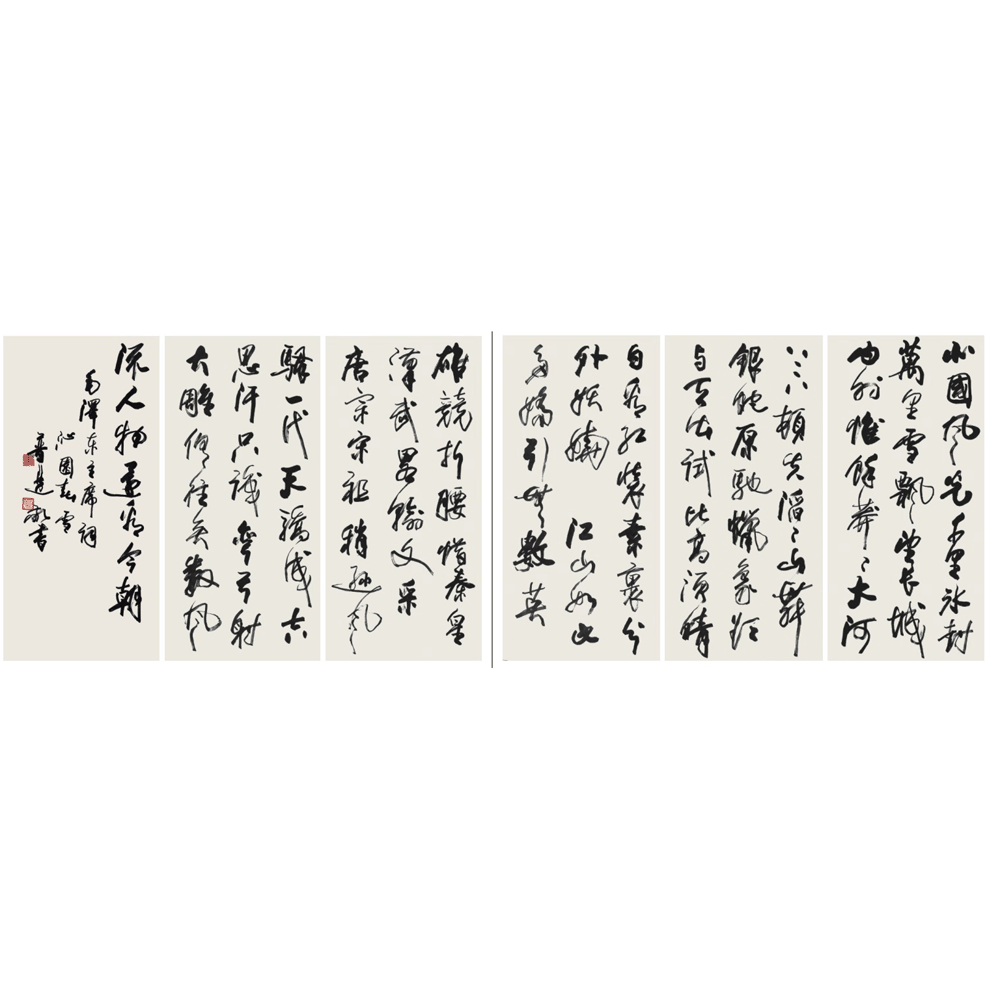 北國風光千里冰封
萬里雪飄望長城
内外惟餘莽〻大河
上下頓失滔〻山舞
銀蛇原馳蠟象欲
与天公試比高須晴
日看紅裝素裹分
外妖嬈江山如此
多嬌引無數英
雄競折腰惜秦皇
漢武畧輸文采
唐宗宋祖稍遜風
騷一代天驕成吉
思汗只識彎弓射
大雕俱往矣数風
流人物還看今朝
毛澤東主席詞
沁園春雪
書